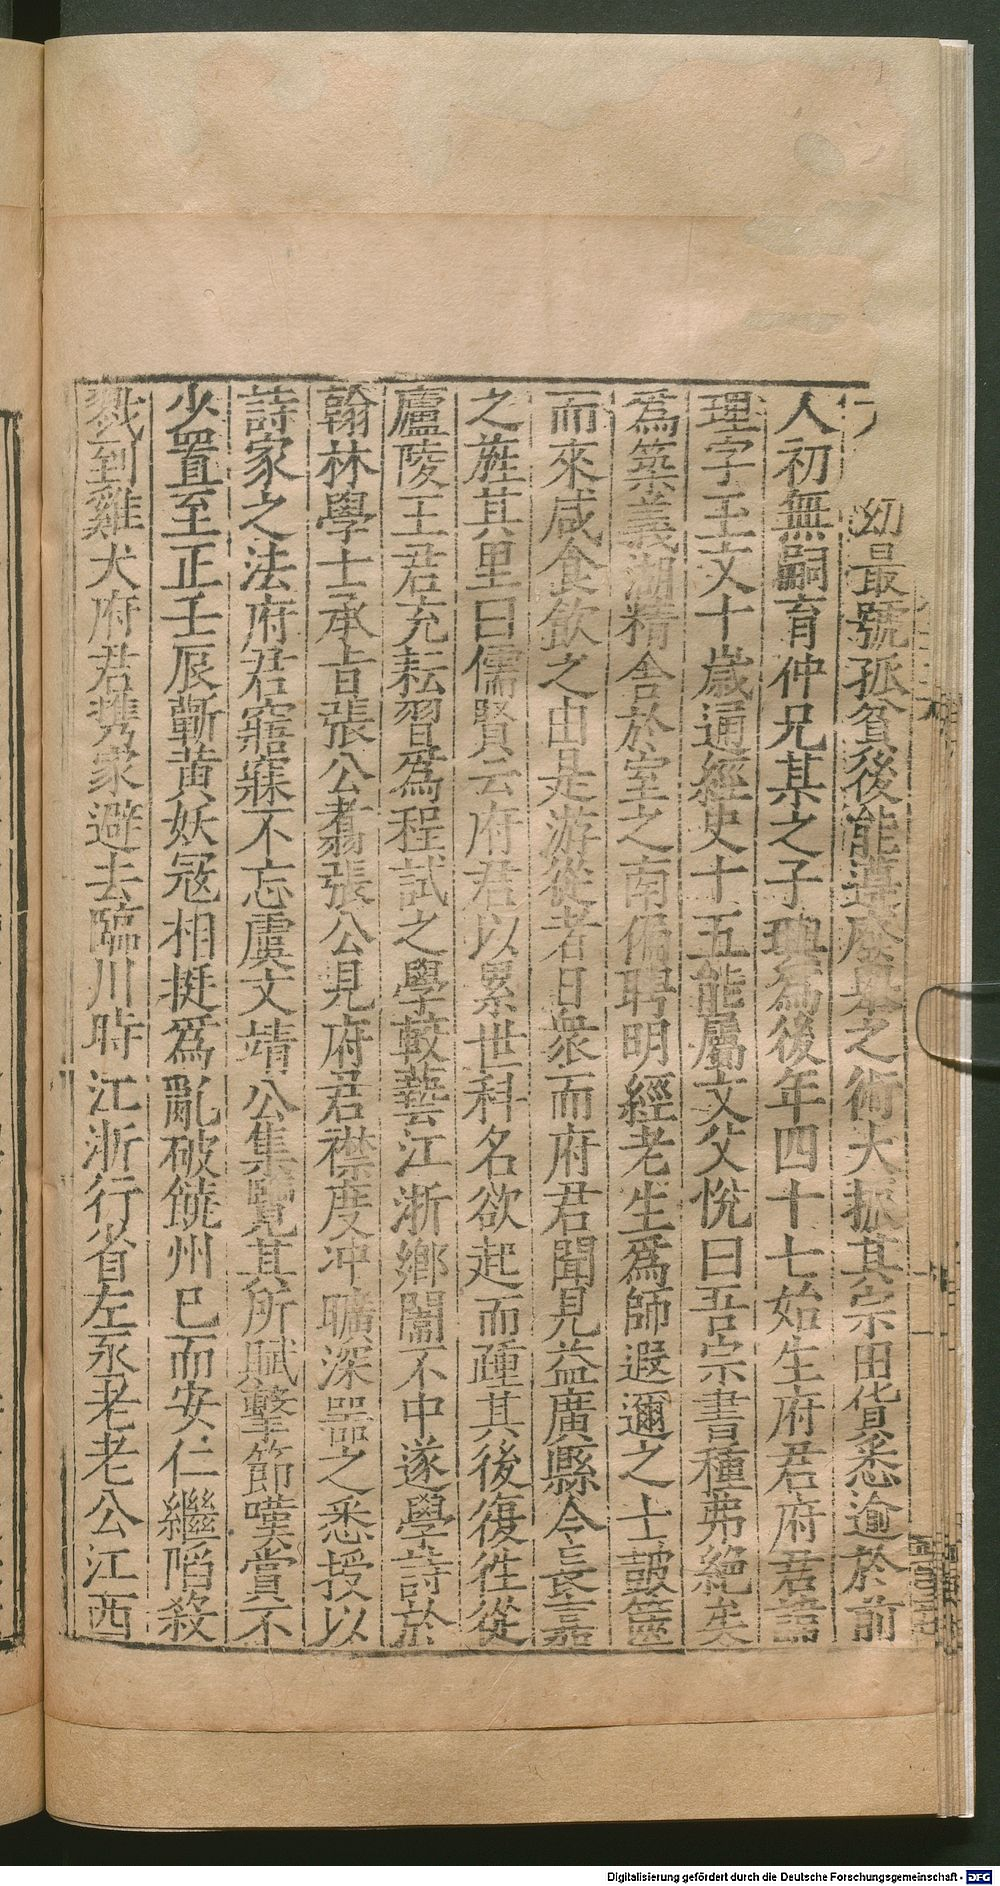 幼最號孤貧後能遵廢舉之術大振其宗田貨悉逾於前
人初無嗣育仲兄某之子璵為後年四十七始生府君府君諱
理字王文十歲通經史十五能屬文父悅曰吾宗書種弗絶矣
爲築義湖精舍於室之南偏聘明經老生爲師遐邇之士鼓篋
而來咸食飲之由是游從者日衆而府君聞見益廣縣令長嘉
之旌其里曰儒賢云府君以累世科名欲起而踵其後復徃從
廬陵王君充耘習爲程試之學較藝江浙鄉闈不中遂學詩於
翰林學士承旨張公翥張公見府君襟度冲曠深器之悉授以
詩家之法府君寤寐不忘虞文靖公集覽其所賦擊節嘆賞不
少置至正壬辰蘄黃妖冦相挺爲亂破饒州已而安仁繼陷殺
戮到雞犬府君携家避去臨川時江浙行省左丞老老公江西
Digitalisierung gefördert durch die Deutsche Forschungsgemeinschaft - DFG